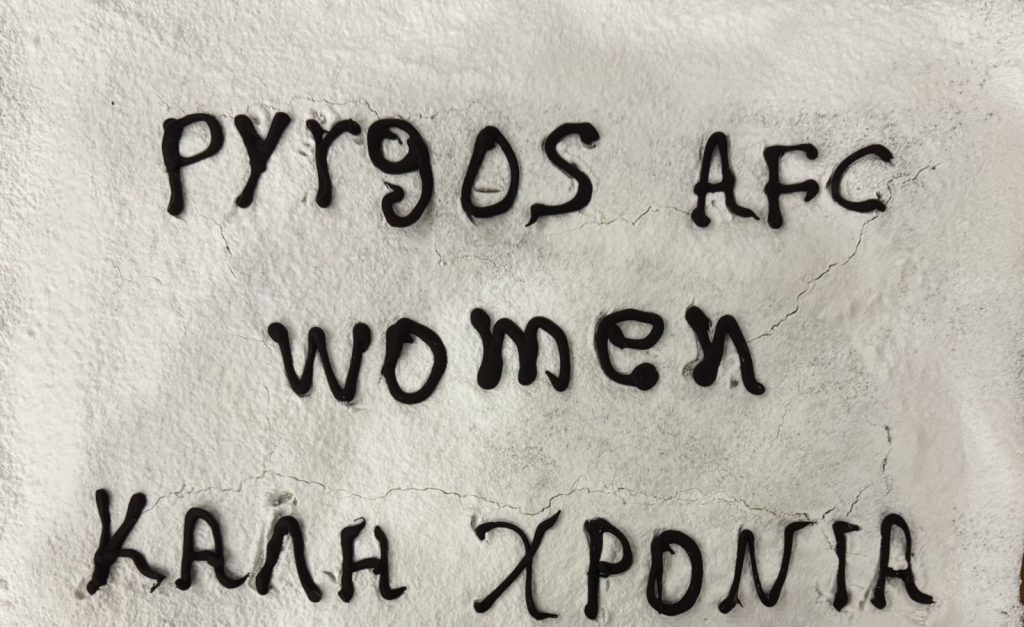 Pyrgos AFC
women
ΚΑΛΗ ΧΡΟΝΙΑ